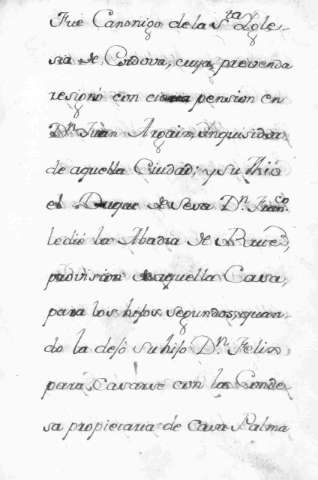 Fue Canonigo de la S.ta Ygle-
sia de Cordova, cuya prevenda
resignó con cierta pension en
D.n Juan Argaiz, Ynquisidor
de aquella Ciudad; y su thio
el Duque de Seva D.n Fran.co
le dió la Abadia de
provision de aquella Casa,
para los hijos segundos, quan-
do la dejó su hijo D.n Felix,
para casarse con la Conde
sa propietaria de Casa Palma